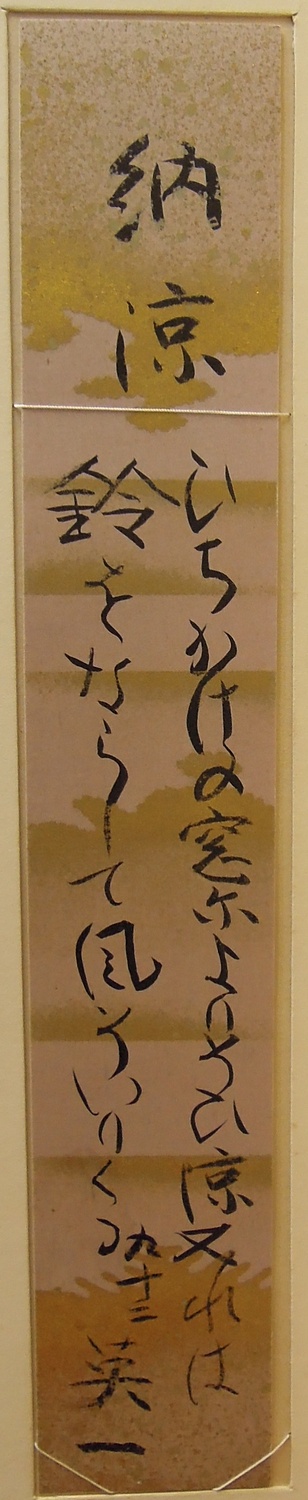 納涼
ひちかけの窓によりそひ涼又れは
鈴をならして風そいりくる 九十二 英一